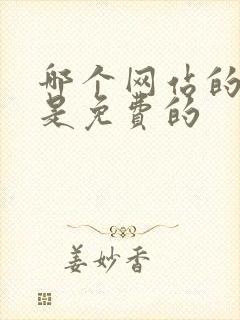 哪个网站的
是免费的
姜妙香